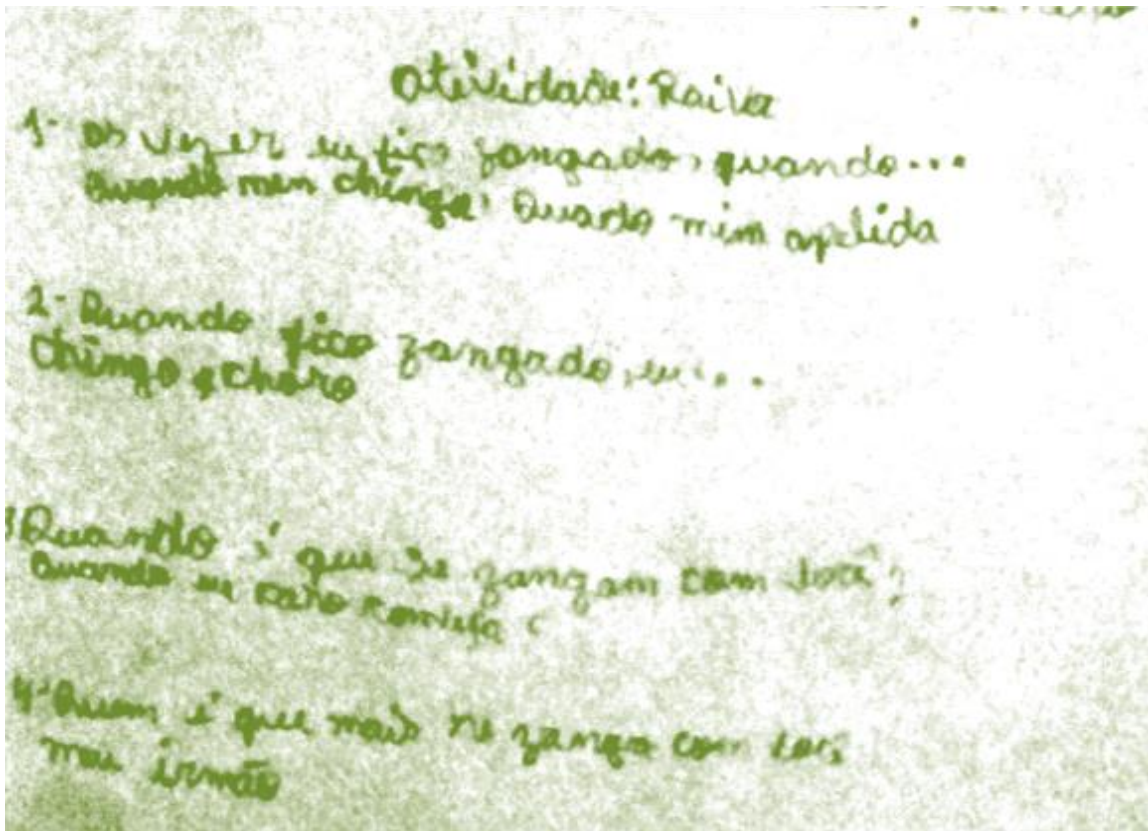 Atividade: Raiva
1- as vezer eu fico zangado, quando...
Quando men chinga. Quado mim apelida
2- Quando fico zangado, eu...
chingo, choro
Quando é que se zangam com você?
Quando eu
4- Quem é que mais se zanga com
meu irmão